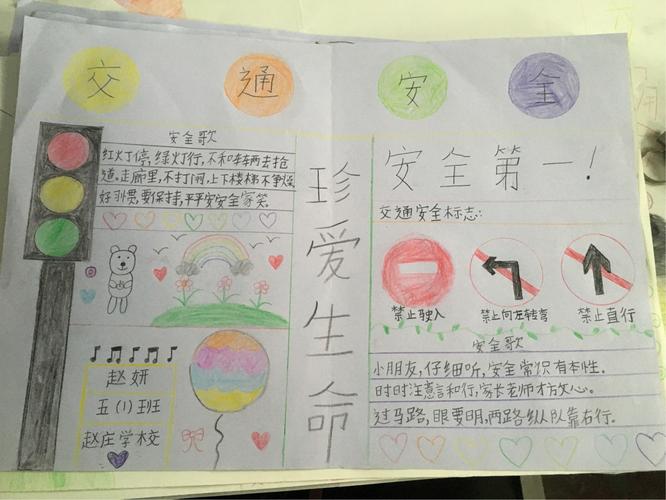 交 通 安 全
安全歌
红灯停,绿灯行,不和车辆去抢
道。走廊里,不打闹,上下楼梯不争
好习惯,要保持,平平安安全家笑。
赵妍
五(1)班
赵庄学校
珍爱生命
安全第一!
交通安全标志:
禁止驶入 禁止向左转弯 禁止直行
安全歌
小朋友,仔细听,安全常识有本性。
时时注意言和行,家长老师才放心。
过马路,眼要明,两路纵队靠右行。